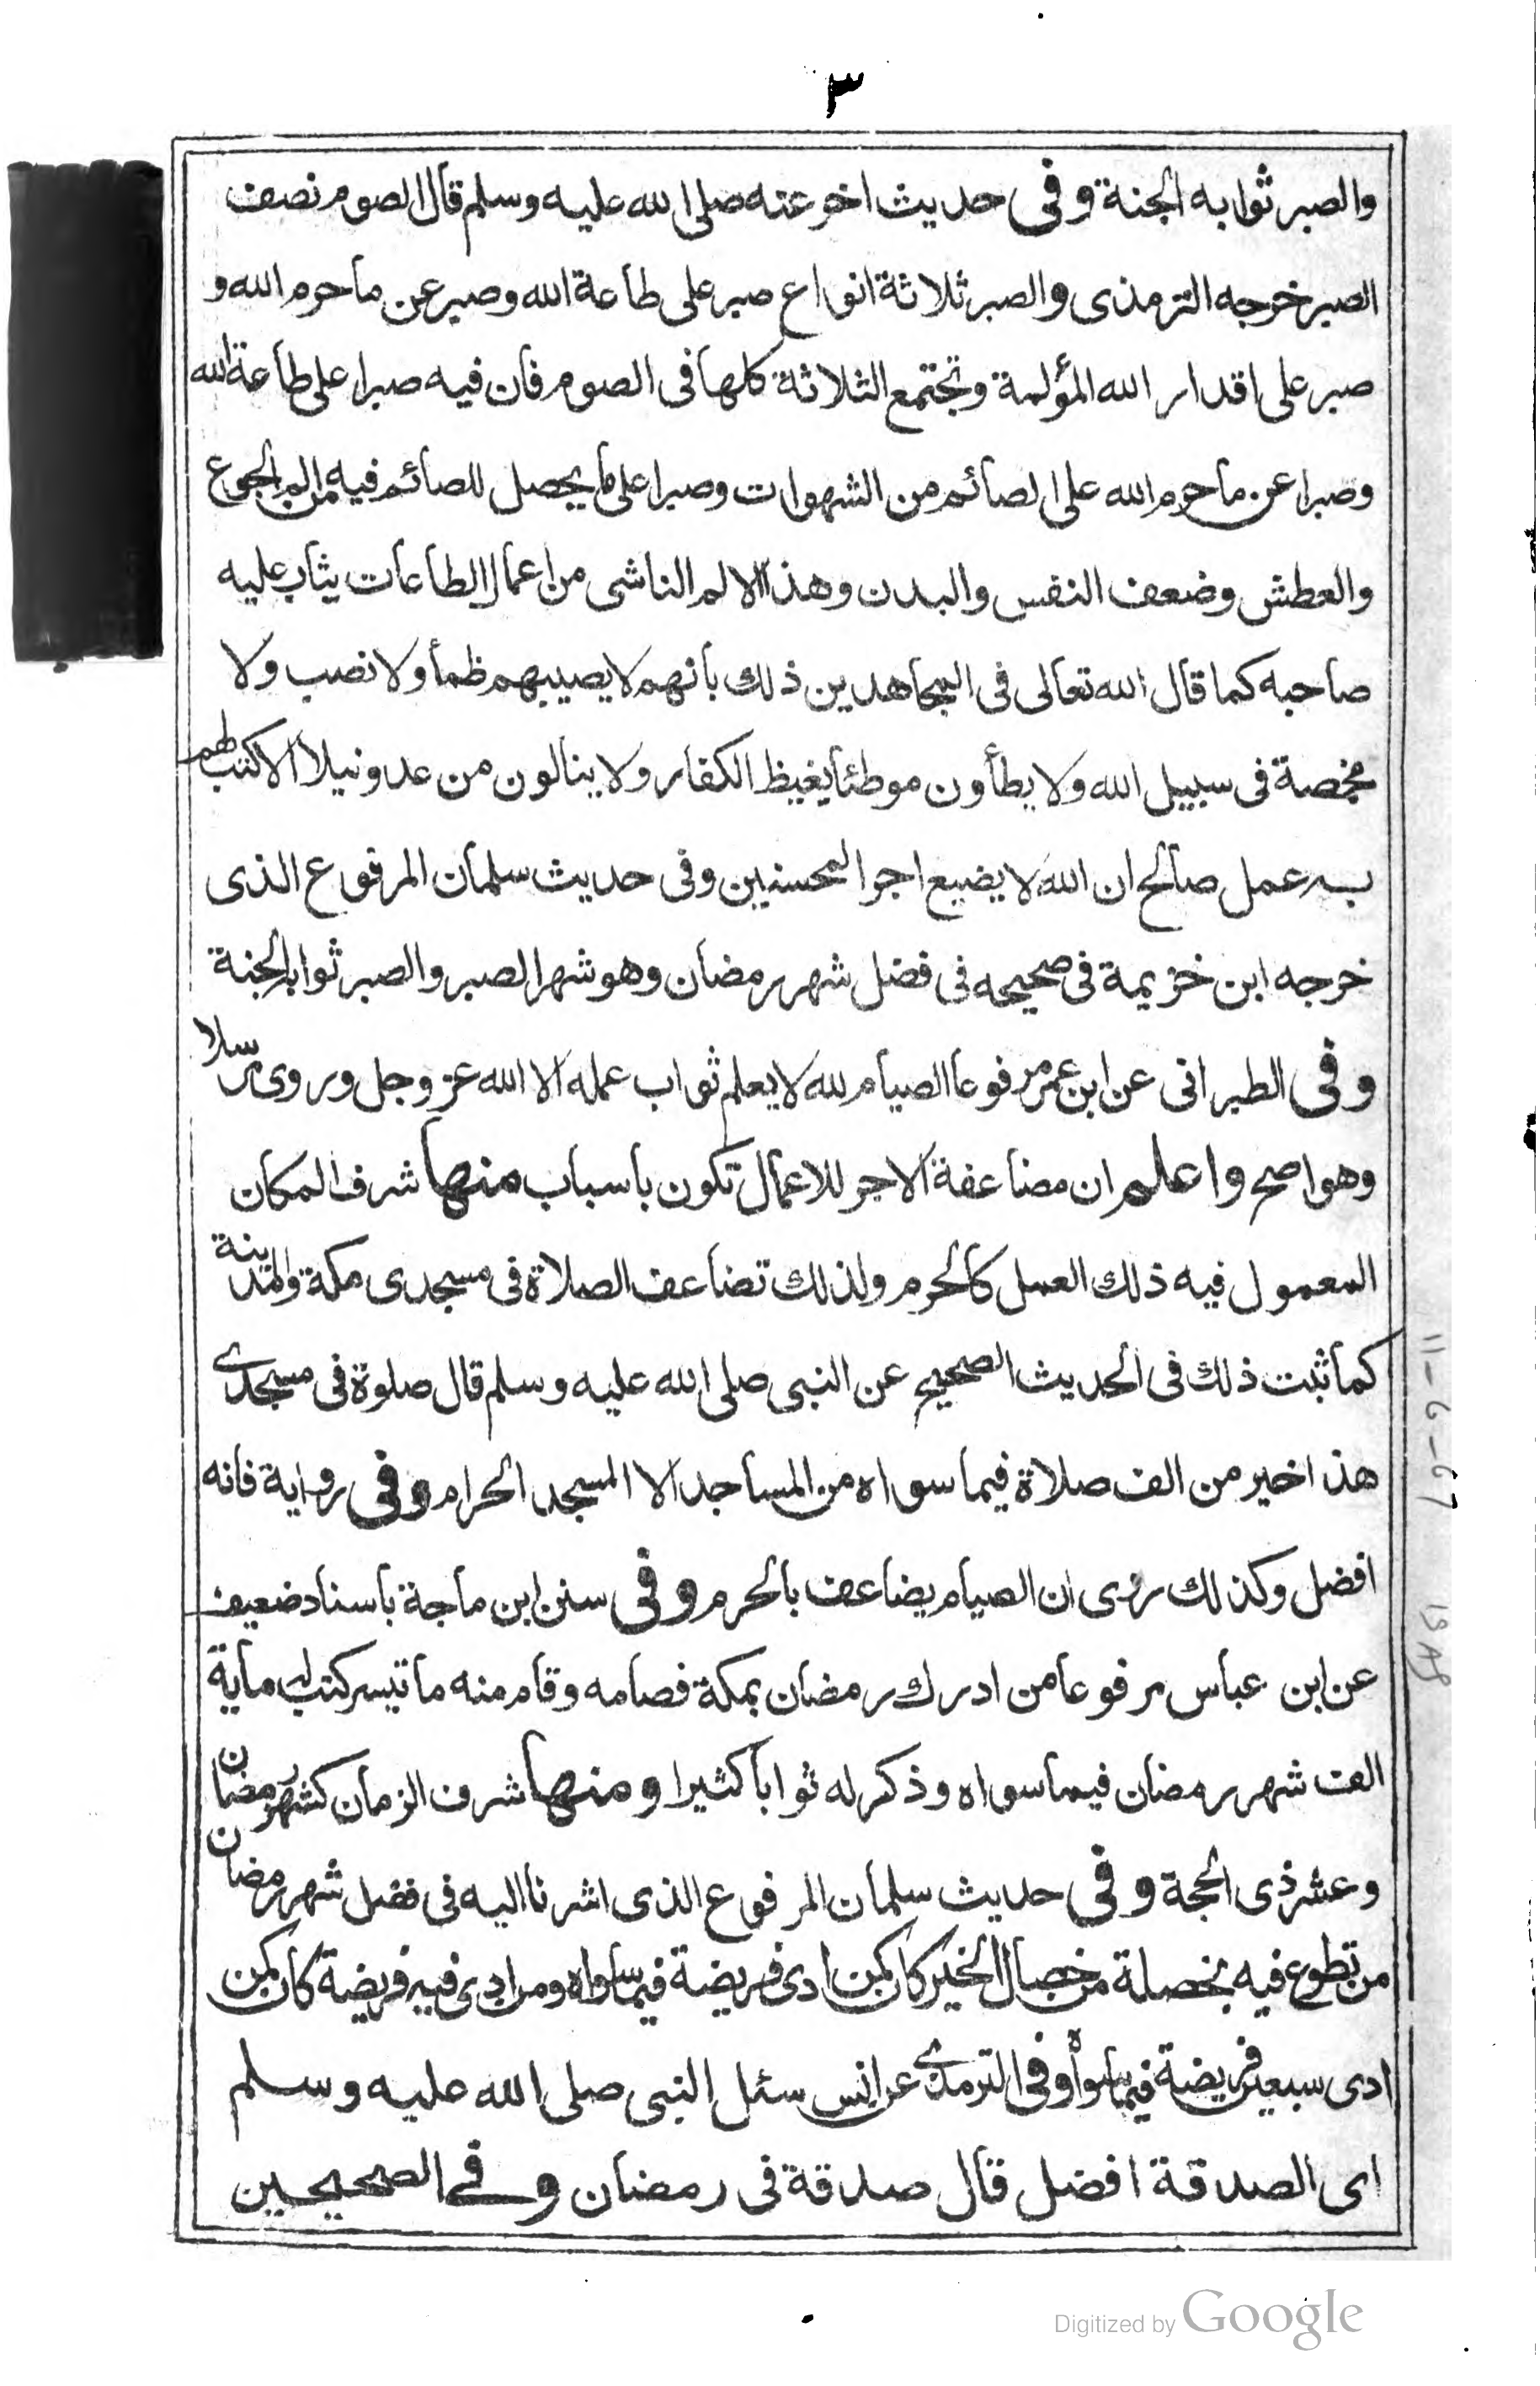 ٣
والصبر ثوابه الجنة وفى حديث اخر عنه صلى الله عليه وسلم قال الصوم نصف
الصبر خرجه الترمذى والصبر ثلاثة انواع صبر على طاعة الله وصبر عن ما حرم الله و
صبر على اقدار الله المؤلمة وتجتمع الثلاثة كلها فى الصوم فان فيه صبرا على طاعة الله
وصبرا عن ما حرم الله على الصائم من الشهوات وصبرا على ما يحصل للصائم فيه من الم الجوع
والعطش وضعف النفس والبدن وهذا الالم الناشى من اعمال الطاعات يثاب عليه
صاحبه كما قال الله تعالى فى المجاهدين ذلك بانهم لا يصيبهم ظمأ ولا نصب ولا
مخمصة فى سبيل الله ولا يطأون موطئا يغيظ الكفار ولا ينالون من عدو نيلا الا كتب لهم
به عمل صالح ان الله لا يضيع اجر المحسنين وفى حديث سلمان المرفوع الذى
خرجه ابن خزيمة فى صحيحه فى فضل شهر رمضان وهو شهر الصبر والصبر ثوابه الجنة
وفى الطبرانى عن ابن عمر مرفوعا الصيام لله لا يعلم ثواب عمله الا الله عز وجل وروى مرسلا
وهو اصح واعلم ان مضاعفة الاجر للاعمال تكون باسباب منها شرف المكان
المعمول فيه ذلك العمل كالحرم ولذلك تضاعف الصلاة فى مسجدى مكة والمدينة
كما ثبت ذلك فى الحديث الصحيح عن النبى صلى الله عليه وسلم قال صلوة فى مسجدى
هذا خير من الف صلاة فيما سواه من المساجد الا المسجد الحرام وفى رواية فانه
افضل وكذلك روى ان الصيام يضاعف بالحرم وفى سنن ابن ماجة باسناد ضعيف
عن ابن عباس مرفوعا من ادرك رمضان بمكة فصامه وقام منه ما تيسر كتب له ماية
الف شهر رمضان فيما سواه وذكر له ثوابا كثيرا ومنها شرف الزمان كشهر رمضان
وعشر ذى الحجة وفى حديث سلمان المرفوع الذى اشرنا اليه فى فضل شهر رمضان
من تطوع فيه بخصلة من خصال الخير كان كمن ادى فريضة فيما سواه ومن ادى فيه فريضة كان كمن
ادى سبعين فريضة فيما سواه وفى الترمذى عن انس سئل النبى صلى الله عليه وسلم
اى الصدقة افضل قال صدقة فى رمضان وفى الصحيحين
Digitized by Google